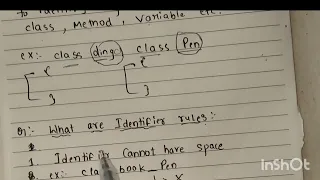 class, Method, Variable etc.
ex:- class ding class Pen
{ {
} }
Q1:- What are Identifier rules:-
1. Identifier Cannot have space
ex: class book_Pen
InShOt